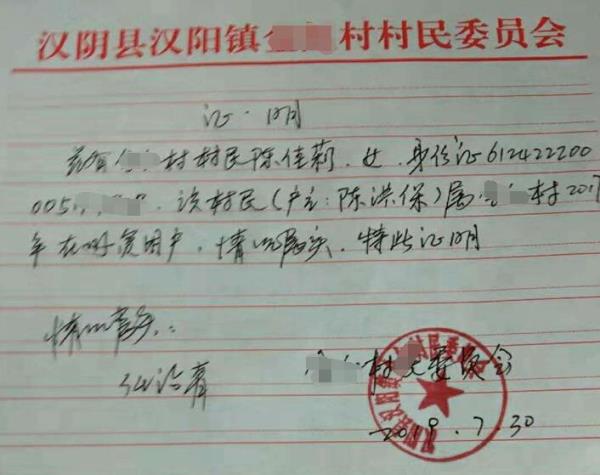 汉阴县汉阳镇金村村民委员会
证明
兹有村村民陈佳莉.女.身份证612422200
005.该村民(户主:陈洪保)属村2017
年在册贫困户,情况属实.特此证明
情况属实.
村民委员会
2019.7.30